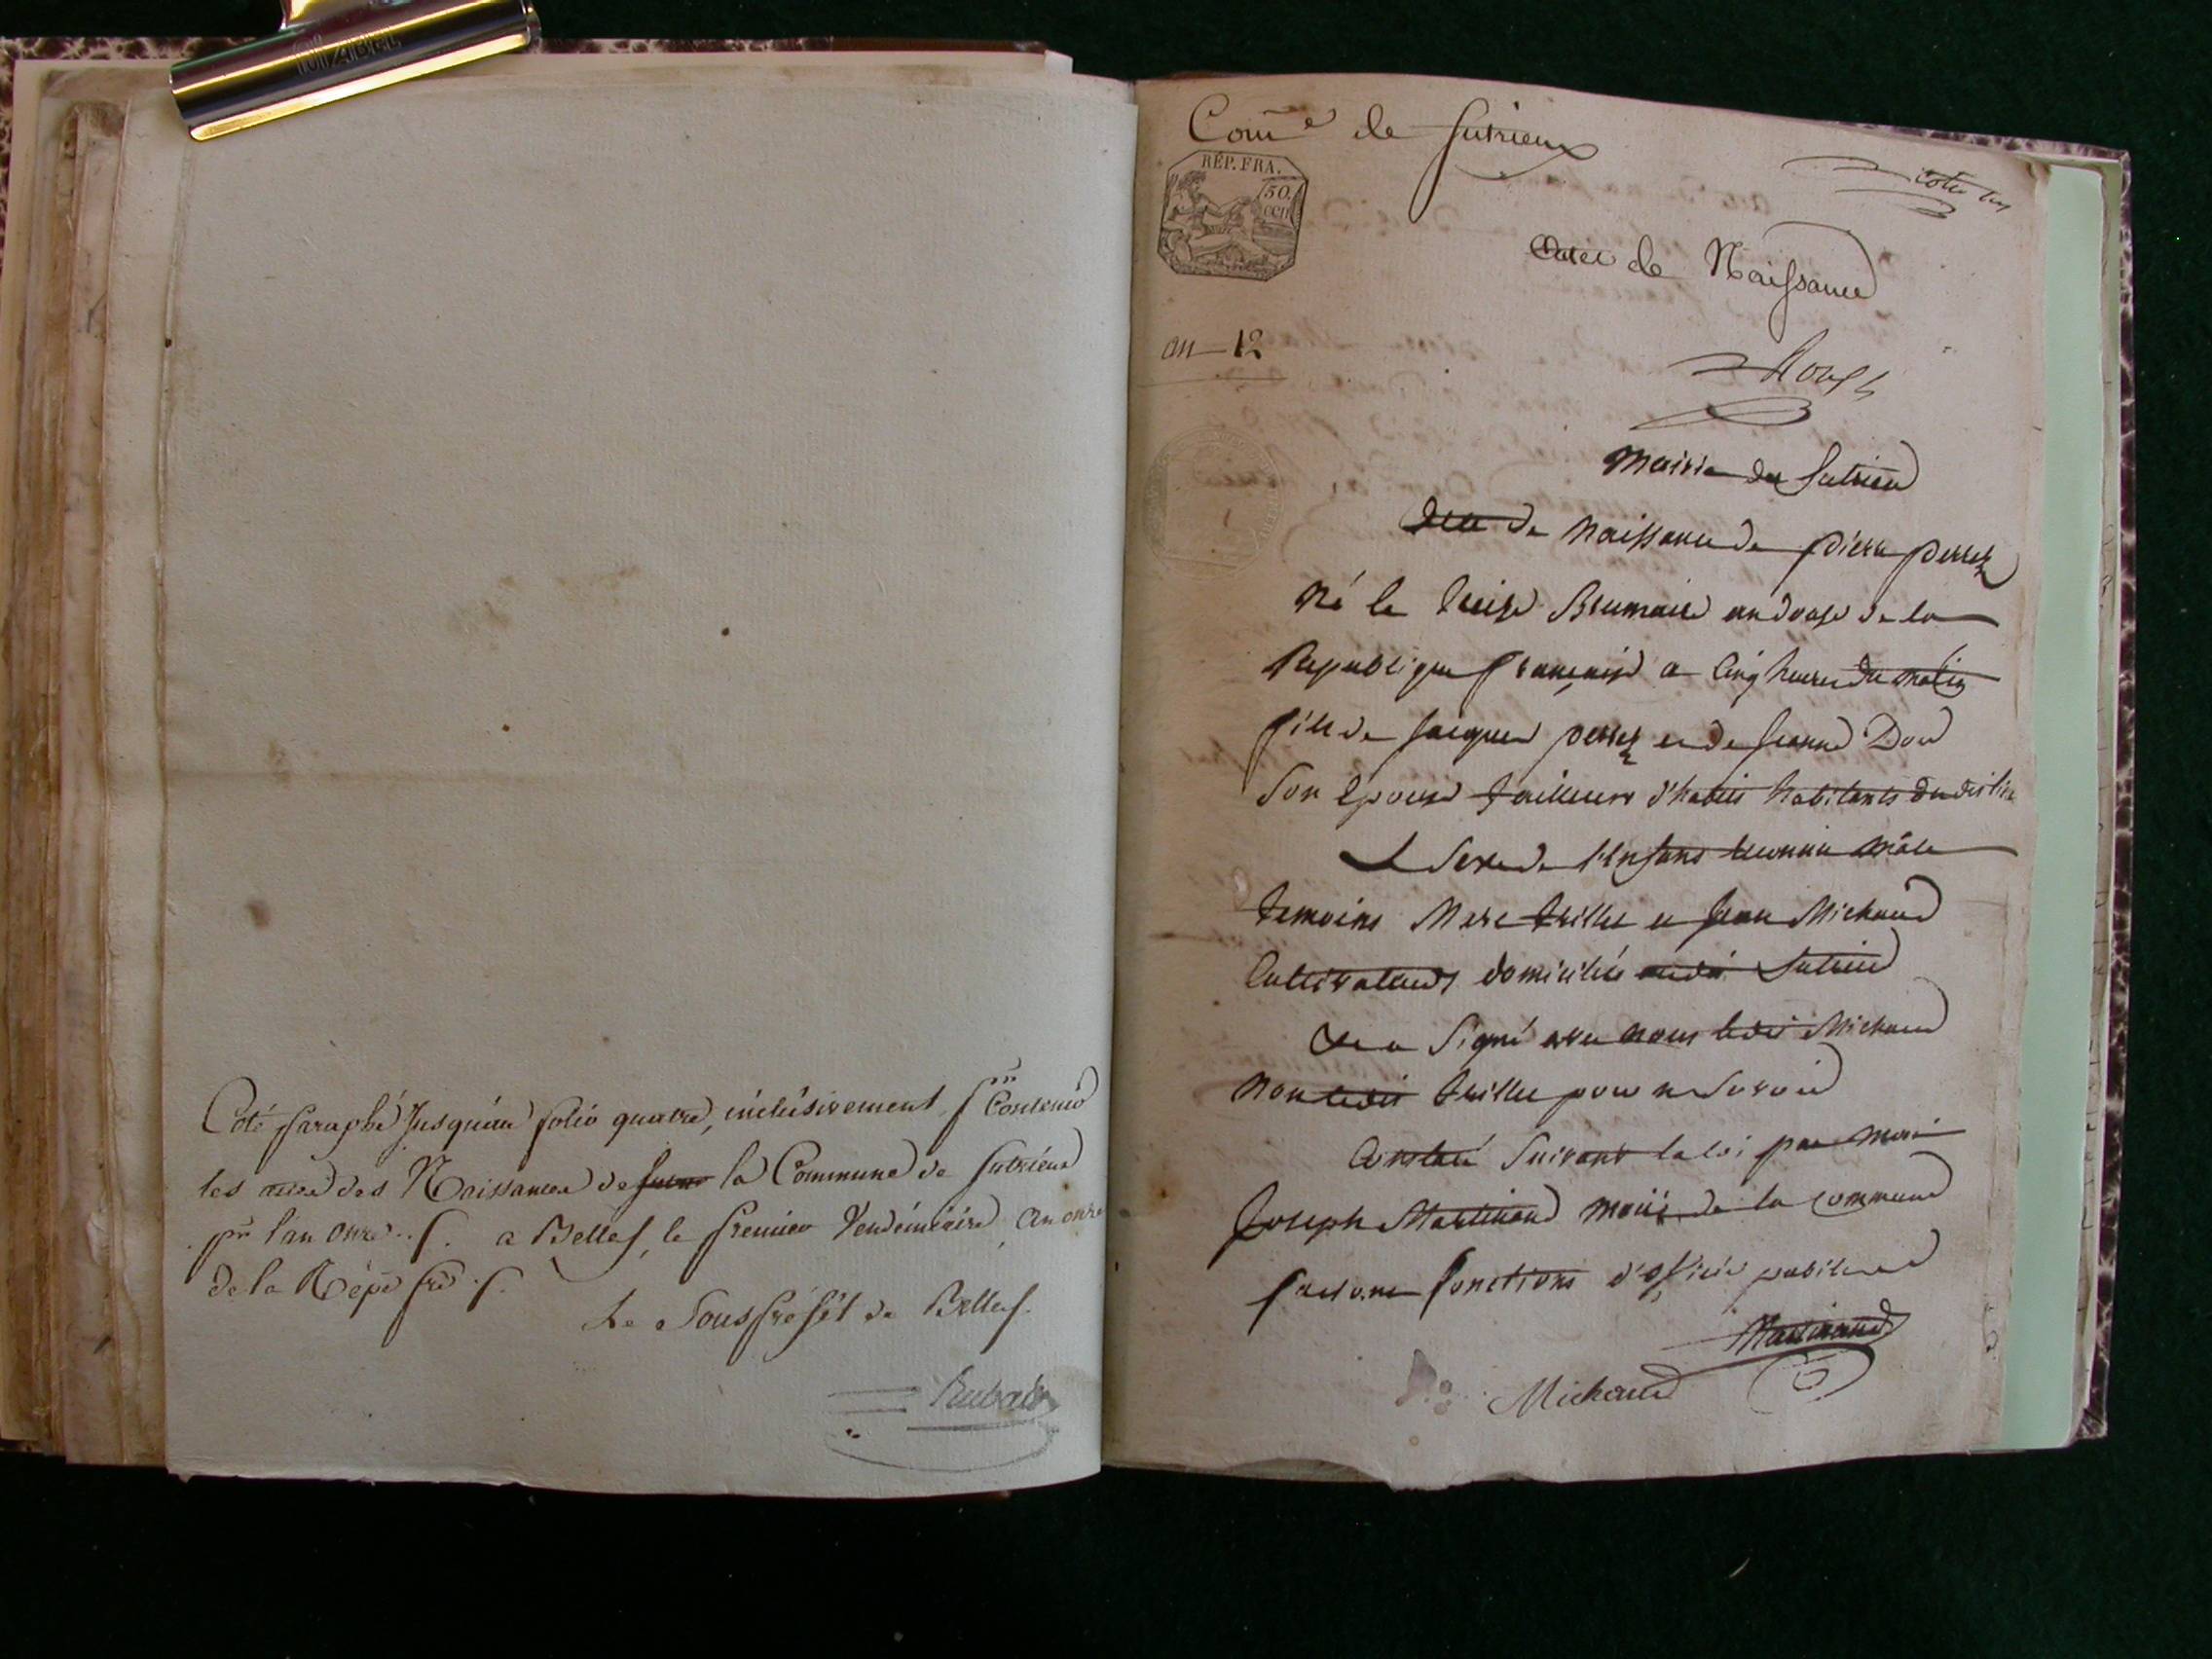 Coté paraphé Jusqu'au folio quatre, inclusivement, pr Contenir
les actes des Naissances de la Commune de Sutrieu
pr l'an onze. a Belley, le premier Vendémiaire an onze
de la Répe fre.
Le Sous préfet de Belley.
Rubat
Come de Sutrieux
RÉP. FRA.
50.
cen
Actes de Naissance
an 12
Mairie de Sutrieu
Acte de Naissance de pierre perret
Né le treize Brumaire an douze de la
Republique française a Cinq heures du matin
fils de Jacques perret et de Jeanne
Son Epouse tailleur d'habits habitants dudit lieu
Le Sexe de l'Enfant reconnu mâle
temoins Marc trillet et Jean Michaud
Cultivateurs domiciliés audit Sutrieu
Et a Signé avec nous ledit Michaud
Non ledit trillet pour ne Savoir
Constaté Suivant la loi par moi
Joseph Martinand maire de la commune
faisant fonctions d'officier public
Martinand
Michaud